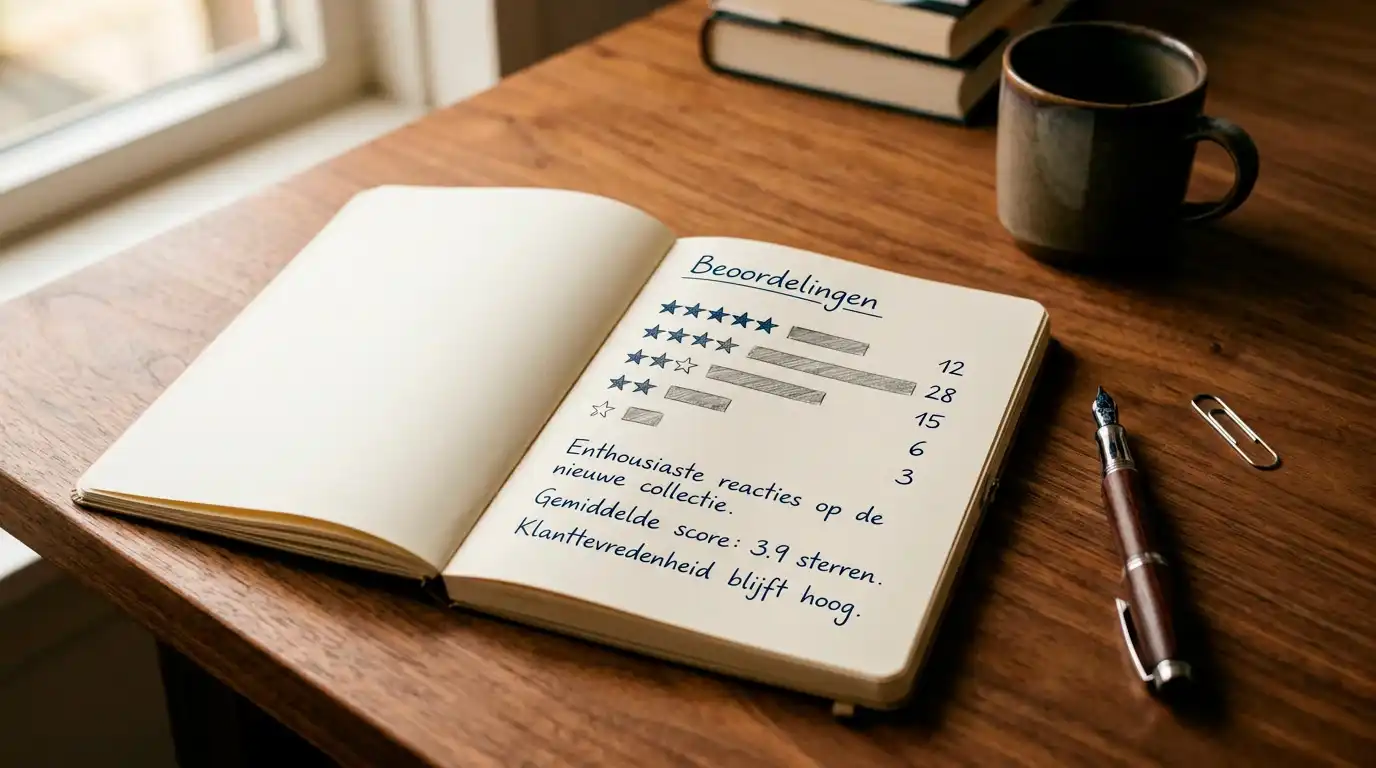 Beoordelingen
★★★★★ 12
★★★★ 28
★★☆ 15
★★ 6
☆ 3
Enthousiaste reacties op de
nieuwe collectie.
Gemiddelde score: 3.9 sterren.
Klanttevredenheid blijft hoog.